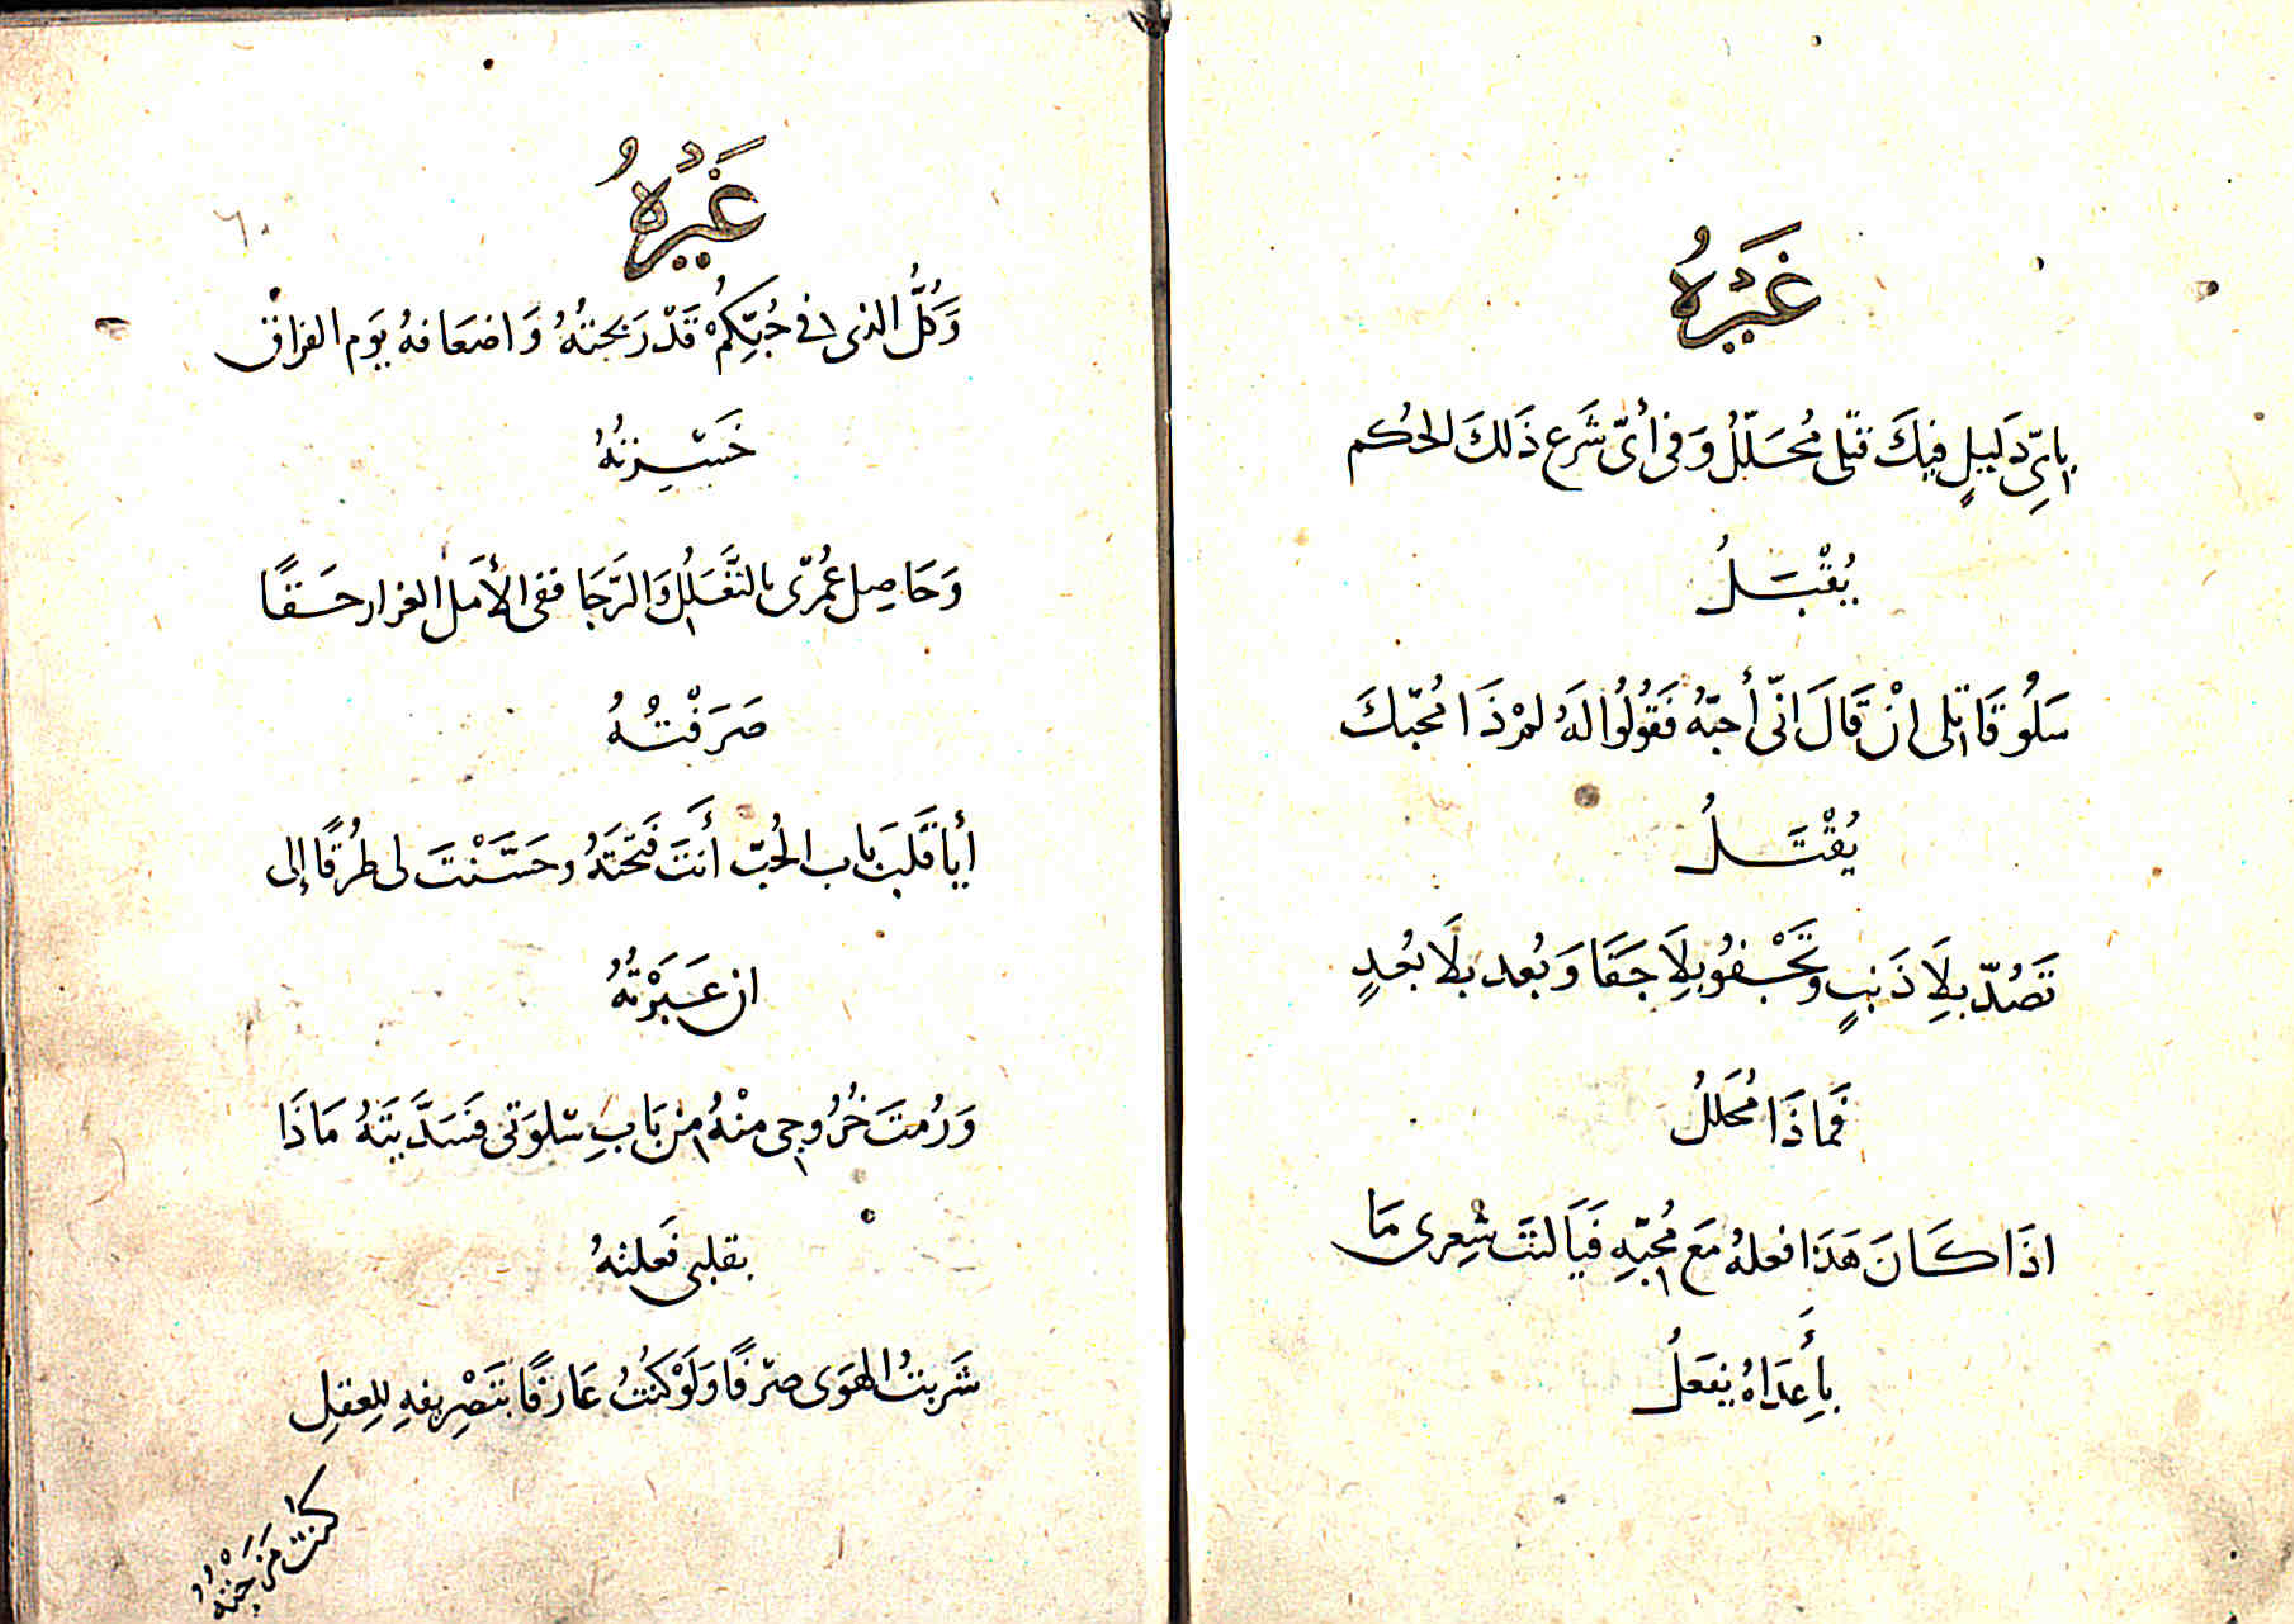 غَيْرُهُ
بِايِّ دَلِيلٍ فِيكَ قتلى مُحَلَّلُ وَفى أىّ شَرع ذَلكَ الحُكم
يُقْبَلُ
سَلُو قَاتلى انْ قَالَ انّى أحبّهُ فَقُولُوا لَهُ لمرْ ذَا مُحبّكَ
يُقْتَلُ
تَصُدّ بِلَا ذَنبٍ وتَجْفُو بِلَا جَفَا وَبُعد بلَا بُعدٍ
فَماذَا مُحَللُ
اذَا كَانَ هَذَا فعلهُ مَع مُحبّهِ فَيَا لَيتَ شِعرى مَا
بِأَعدَاهُ يفعَلُ
غَيْرُهُ
٦٠
وَكُلُّ الذى فى حُبِّكُمْ قَدْ رَبحتُهُ وَاضعَافهُ يَوم الفراق
خَسِرتُهُ
وَحَاصِل عُمُرى بالتَّعَلُّل وَالرَّجَا ففى الأمَل الغرار حَقًا
صَرَفْتُهُ
أيَا قَلبَ بَاب الحُبّ أَنتَ فَتَحتَهُ وحَسَّنْتَ لى طُرُقًا إلى
ان عَبَرْتُهُ
وَرُمتَ خُرُوجى منْهُ من بَابِ سَلوَتى فَسَدَّيتَهُ مَاذَا
بقلبى فَعلتهُ
شَربتُ الهَوَى صرْفًا وَلَوْ كُنتُ عَارفًا بتَصْرِيفهِ لِلعِقلِ
كنتُ مَزَجْتُهُ